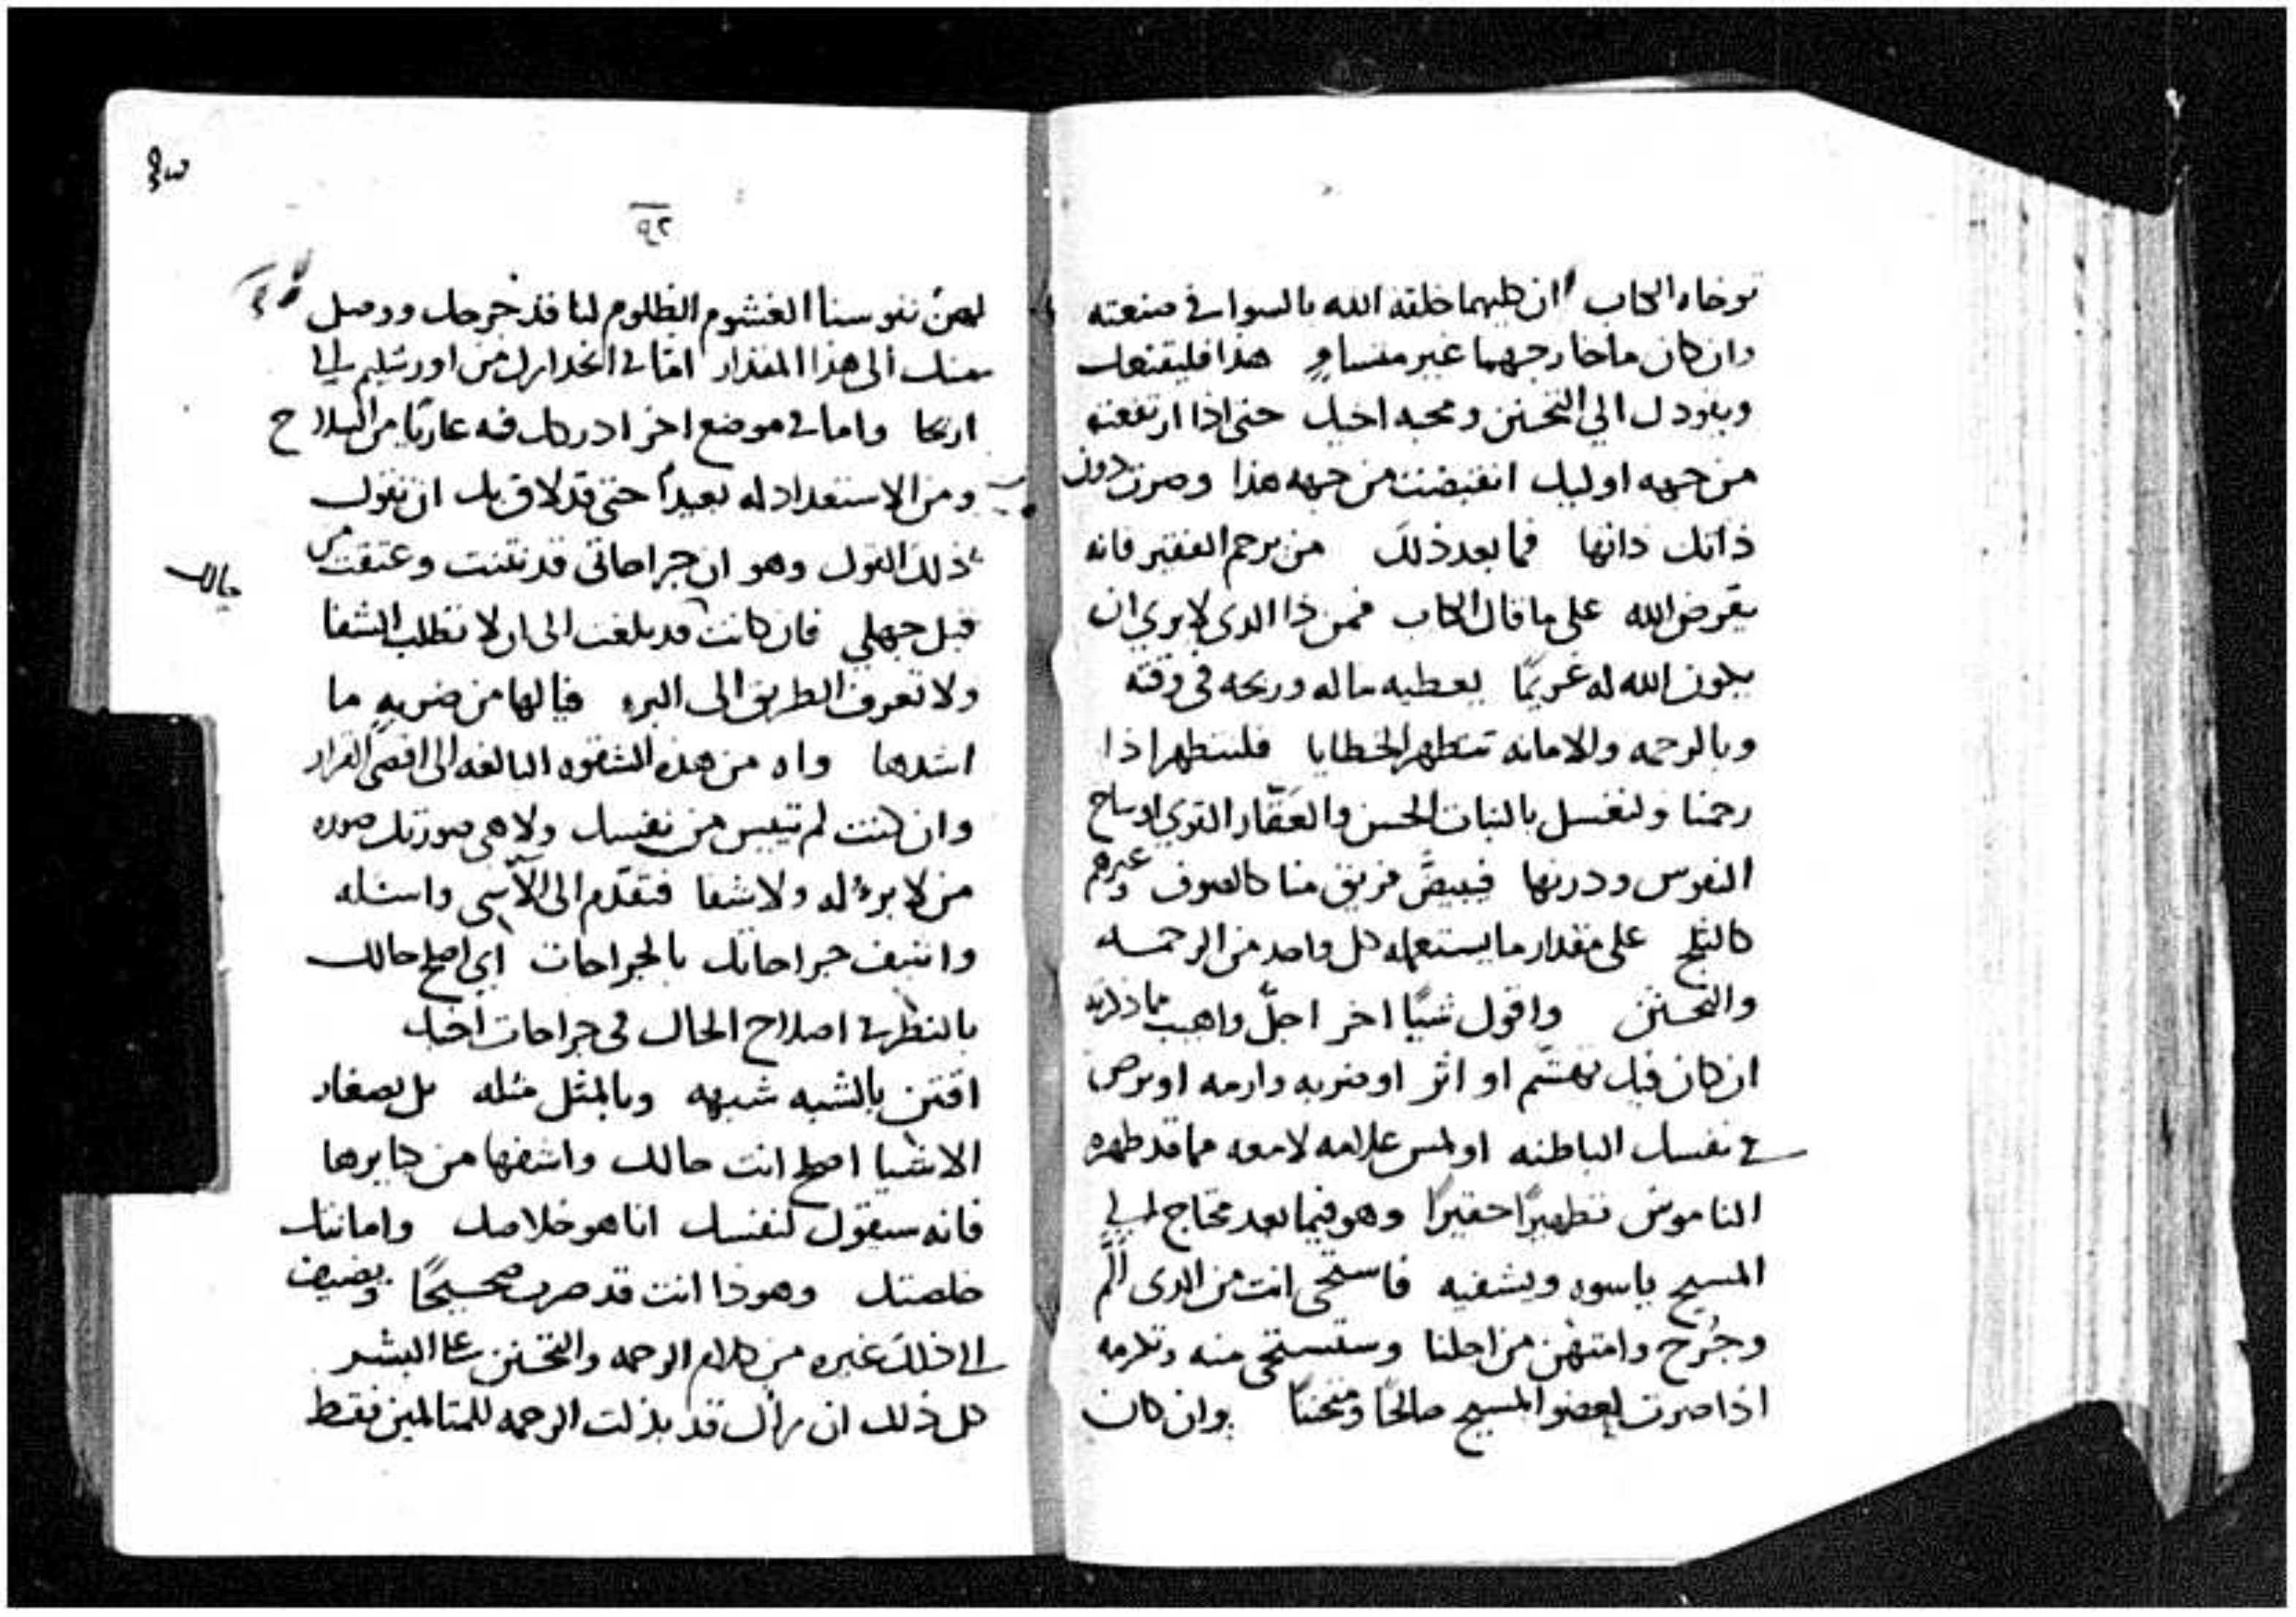 توخاه الكتاب ان كليهما خلقة الله بالسوا في صنعته
وان كان ما خارجهما غير متساوٍ هذا فليقنعك
ويقودك الي التحنن ومحبه اخيك حتى اذا ارتفعت
من جهه اوليك انقبضت من جهه هذا وصرت دون
ذاتك ذاتها فما بعد ذلك من يرحم الفقير فانه
يقرض الله على ما قال الكتاب فمن ذا الدى لا يري ان
يكون الله له غريمًا يعطيه ماله وربحه في وقته
وبالرحمه والامانه تتطهر الخطايا فلنتطهر اذا
رحمنا ولنغسل بالنبات الحسن والعَقّار القوي اوساخ
النفوس ودرنها فيبيضّ فريق منا كالصوف وغيرهم
كالثلج على مقدار ما يستعمله كل واحد من الرحمه
والتحنن واقول شيًا اخر اجلّ واهيب مما ذكرته
ان كان فيك تهشّم او اثر او ضربه وارمه او برص
في نفسك الباطنه او لمس علامه لامعه مما قد طهره
الناموس تطهيرًا حقيرًا وهو فيما بعد محتاج الي
المسيح ياسوه ويشفيه فاستحى انت من الدى الّم
وجُرح وامتهن من اجلنا وستستحى منه وتكرمه
اذا صرت لعضو المسيح صالحًا ومتحننًا وان كان
٩٢
لهنّ نفوسنا الغشوم الظلوم لنا قد جرحك ووصل
منك الى هذا المقدار امّا في انحدارك من اورشليم الي
اريحا واما في موضع اخر ادركك فيه عاريًا من السلاح
ومن الاستعداد له بعيدًا حتى قد لاق بك ان تقول
ذلك القول وهو ان جراحاتى قد نتنت وعتقت من
قبل جهلي فان كانت قد بلغت الى ان لا تطلب الشفا
حالك
ولا تعرف الطريق الى البرء فيالها من ضربهٍ ما
اشدها واه من هذه الشقوه البالغه الى اقصى القرار
وان كنت لم تيبس من نفسك ولا هى صورتك صوره
من لا برءَ له ولا شفا فتقدّم الى الآسى واسئله
واشف جراحاتك بالجراحات اي اصلح حالك
بالنظر في اصلاح الحال في جراحات اخيك
اقتن بالشبه شبهه وبالمثل مثله بل بصغار
الاشيا اصلح انت حالك واشفها من كبايرها
فانه سيقول لنفسك انا هو خلاصك وامانتك
خلصتك وهوذا انت قد صرت صحيحًا ويضيف
الى ذلك غيره من كلام الرحمه والتحنن على البشر
كل ذلك ان رأك قد بذلت الرحمه للمتالمين فقط